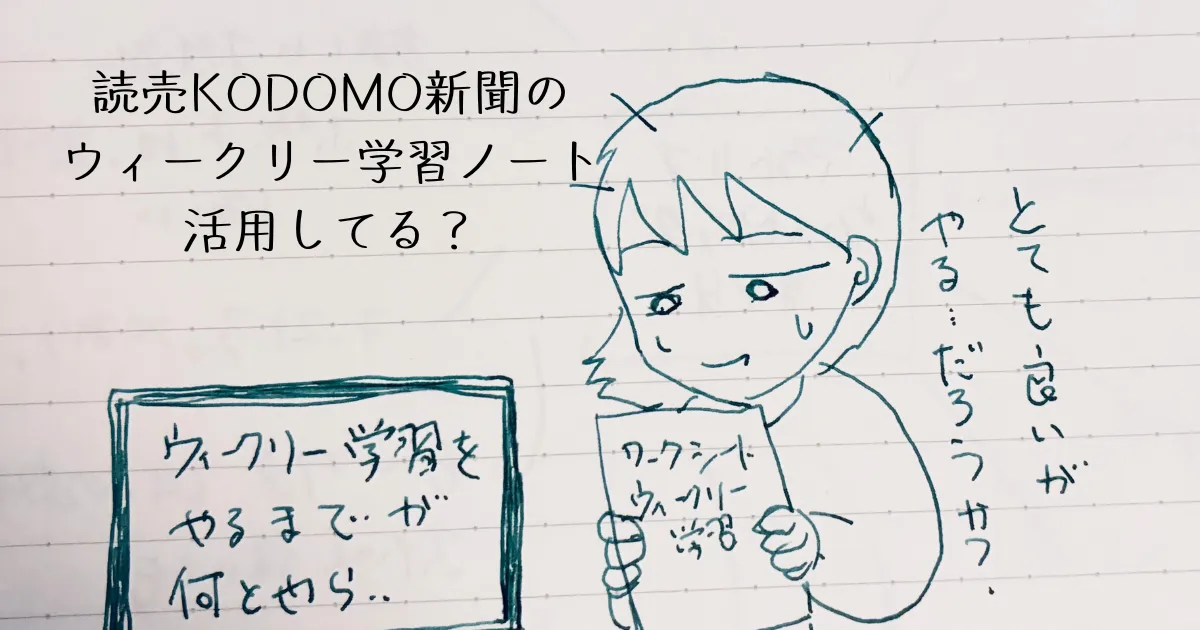 読売KODOMO新聞の
ウィークリー学習ノート
活用してる？
とても良いが
やる…だろうか？
ワークシート
ウィークリー
学習
ウィークリー学習を
やるまで‥が
何とやら‥